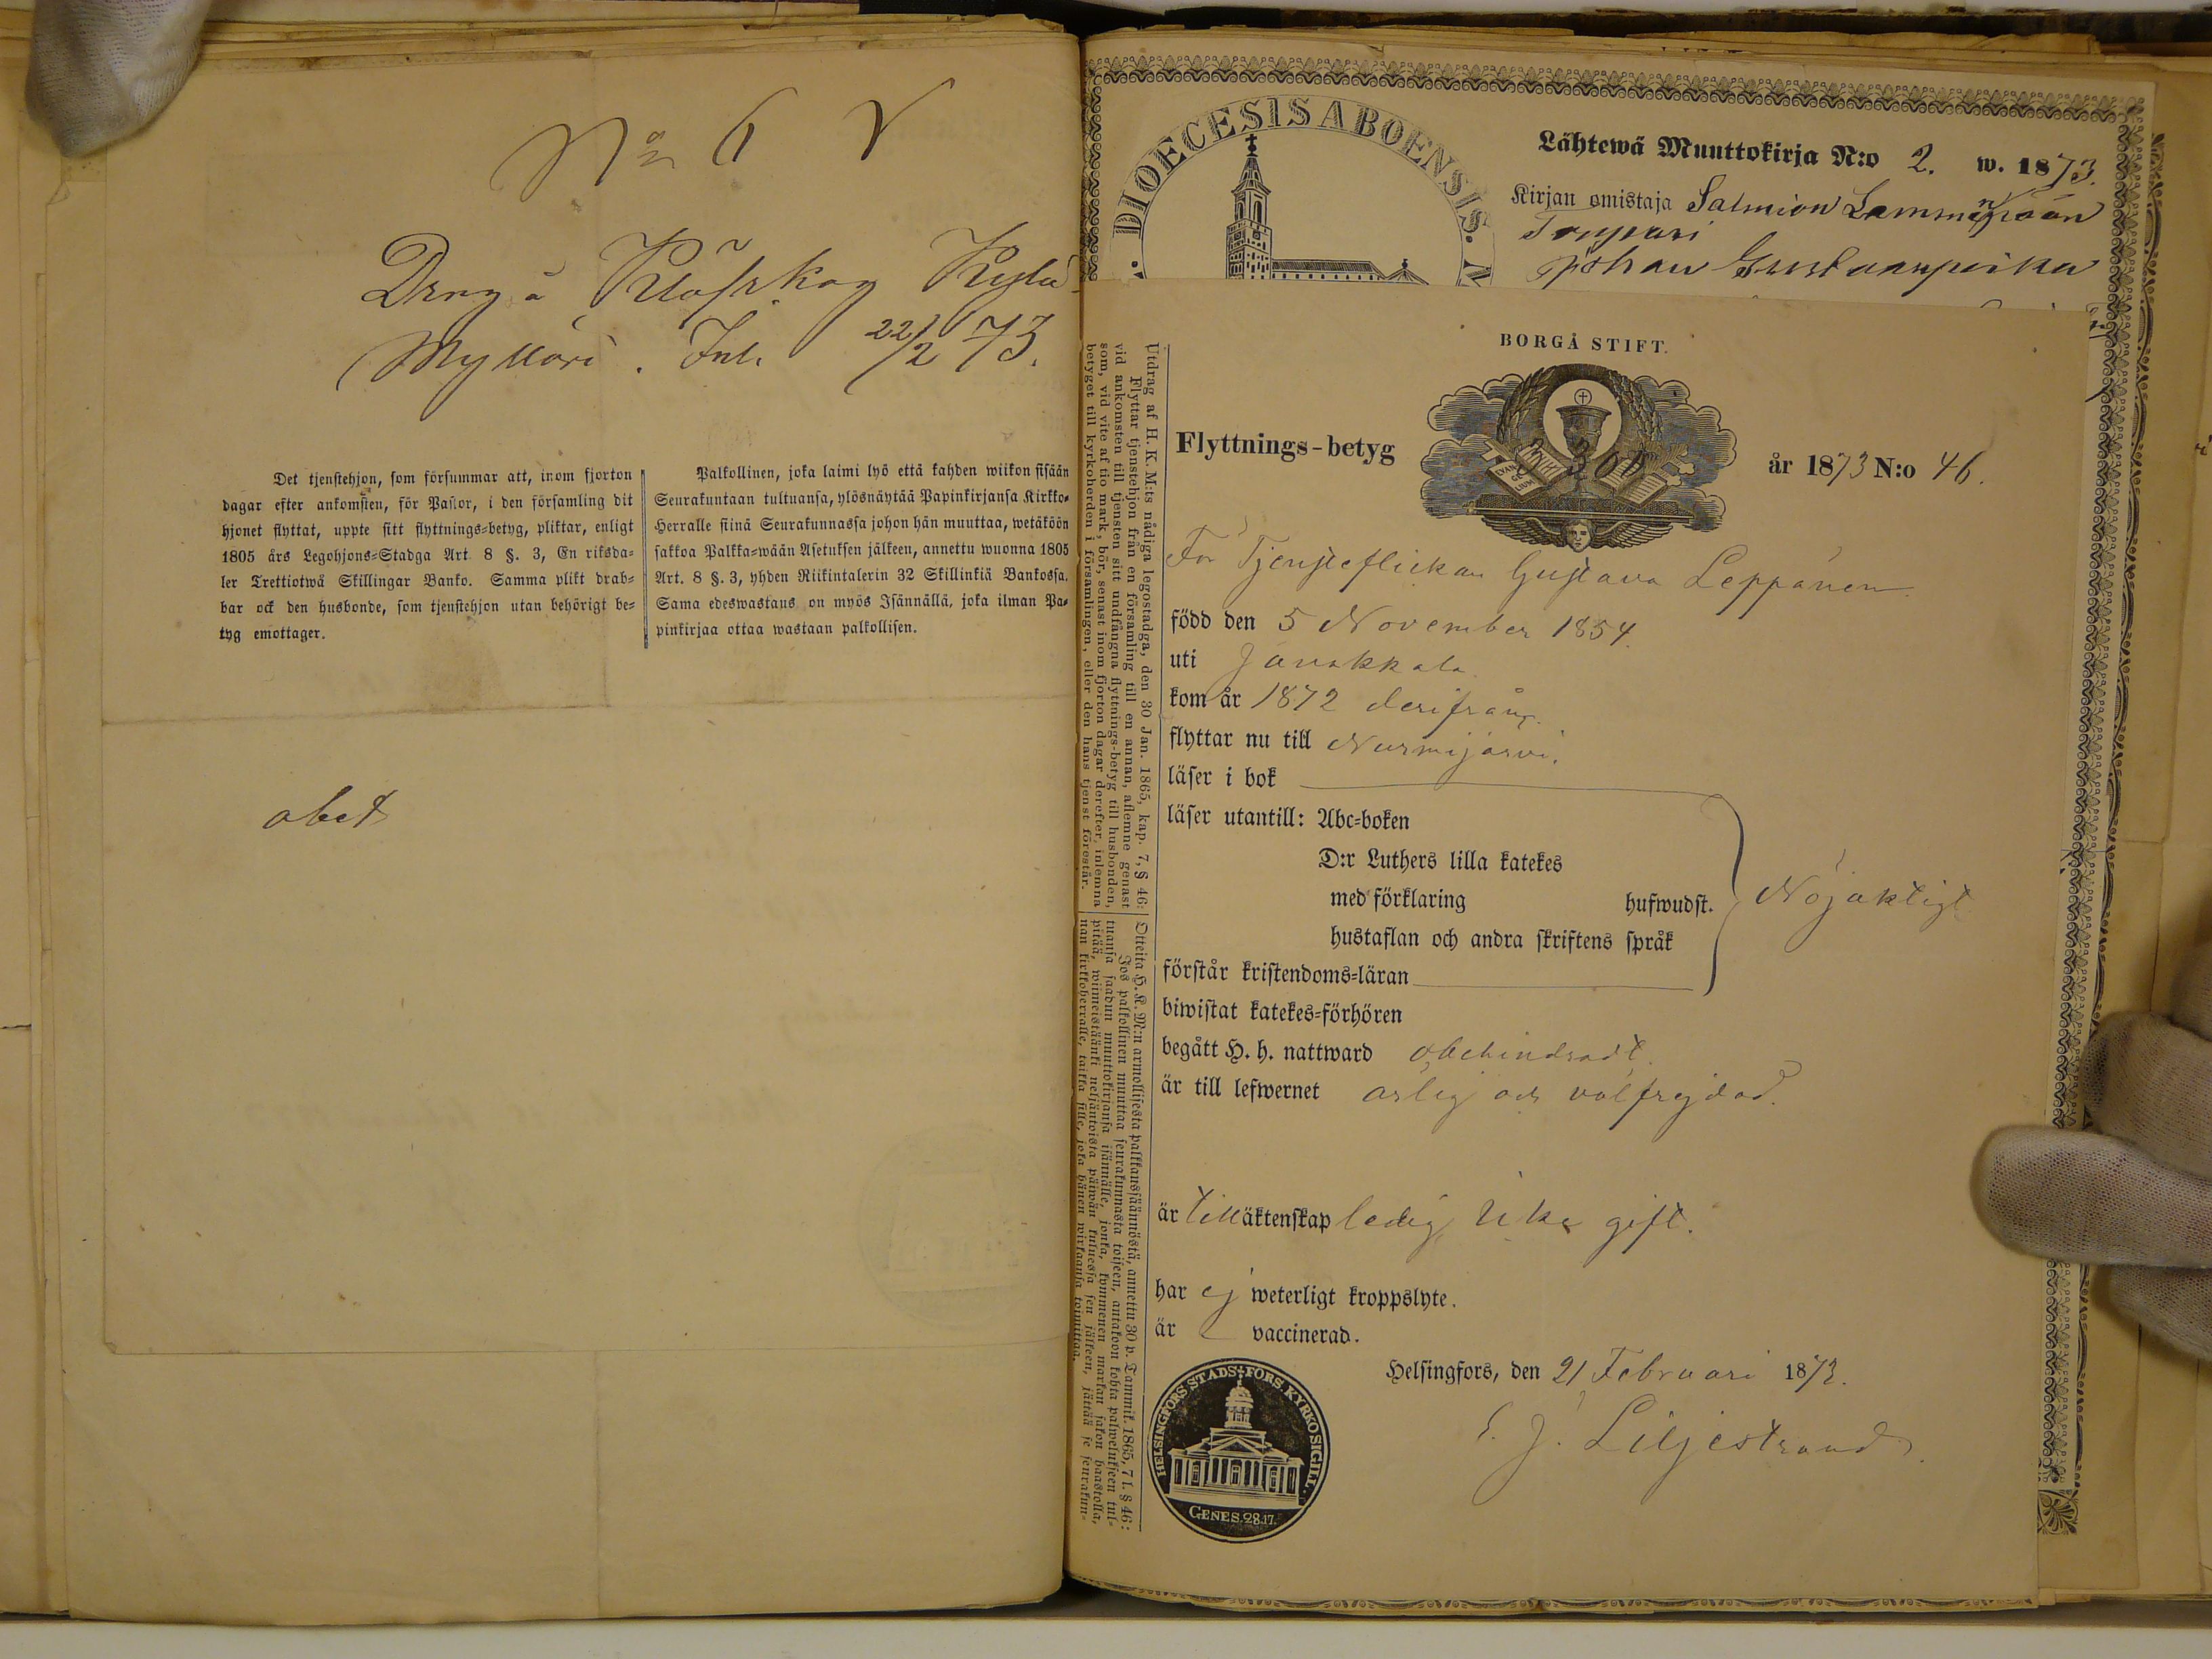 No 6
Dräng å Klöfskog Kylä
Mylläri. Inl. 22/2 73.
Det tjenstehjon, som försummar att, inom fjorton
dagar efter ankomsten, för Pastor, i den församling dit
hjonet flyttat, uppte sitt flyttnings-betyg, pliktar, enligt
1805 års Legohjons-Stadga Art. 8 §. 3, En riksda-
ler Trettiotwå Skillingar Banko. Samma plikt drab-
bar ock den husbonde, som tjenstehjon utan behörigt be-
tyg emottager.
Palkollinen, joka laimi lyö että kahden wiikon sisään
Seurakuntaan tultuansa, ylösnäytää Papinkirjansa Kirkko-
Herralle siinä Seurakunnassa johon hän muuttaa, wetäköön
sakkoa Palkka-wään Asetuksen jälkeen, annettu wuonna 1805
Art. 8 §. 3, yhden Riikintalerin 32 Skillinkiä Bankossa.
Sama edeswastaus on myös Isännällä, joka ilman Pa-
pinkirjaa ottaa wastaan palkollisen.
abet
DIOECESIS ABOENSIS.
Lähtewä Muuttokirja N:o 2. w. 1873.
Kirjan omistaja Salmion
Torppari
Johan Gustaanpoika
BORGÅ STIFT.
Flyttnings-betyg
EVAN
GE
LIUM
år 1873 N:o 46.
För Tjensteflickan Gustava Leppänen
född den 5 November 1854.
uti Janakkala.
kom år 1872 derifrån.
flyttar nu till Nurmijärvi.
läser i bok
läser utantill: Abc-boken
D:r Luthers lilla katekes
med förklaring hufwudst.
Nöjaktigt
hustaflan och andra skriftens språk
förstår kristendoms-läran
biwistat katekes-förhören
begått H. h. nattward obehindradt.
är till lefwernet ärlig och välfrejdad.
är till äktenskap ledig, icke gift.
har ej weterligt kroppslyte.
är vaccinerad.
Helsingfors, den 21 Februari 1873.
E. J. Liljestrand
HELSINGFORS STADS FÖRS. KYRKOSIGILL.
GENES. 28.17.
Utdrag af H. K. M:ts nådiga legostadga, den 30 Jan. 1865, kap. 7, § 46:
Flyttar tjenstehjon från en församling till en annan, aflemne genast
vid ankomsten till tjensten sitt undfångna flyttnings-betyg till husbonden,
som, vid vite af tio mark, bör, senast inom fjorton dagar derefter, inlemna
betyget till kyrkoherden i församlingen, eller den hans tjenst förestår.
Otteita H. K. M:n armollisesta palkkaussäännöstä, annettu 30 p. Tammik. 1865, 7 l. § 46:
Jos palkollinen muuttaa seurakunnasta toiseen, antakoon kohta palwelukseen tul-
tuansa saadun muuttokirjansa isännälle, jonka, kymmenen markan sakon haastolla,
pitää, wiimeistäänki neljäntoista päiwän kuluessa sen jälkeen, jättää se seurakun-
nan kirkkoherralle, taikka sille, joka hänen wirkaansa toimittaa.